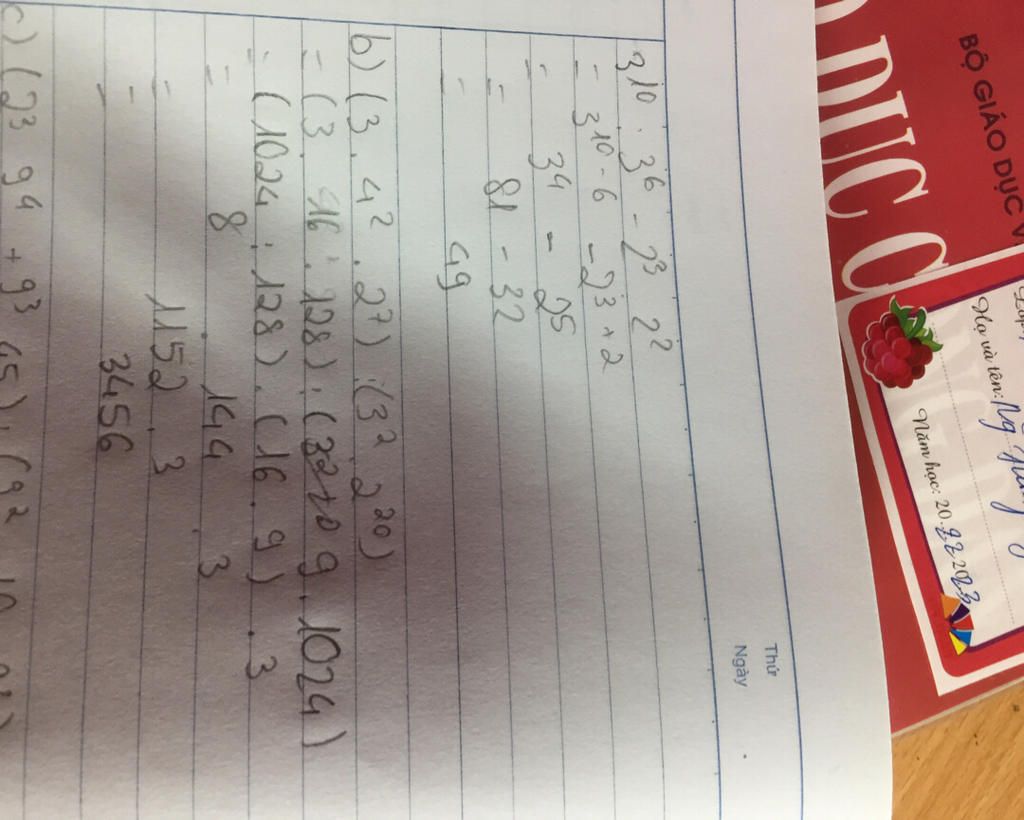 BỘ GIÁO DỤC V
DỤC
Họ và tên:
Năm học: 20.22-2023
Thứ
Ngày
3^10 : 3^6 - 2^3 . 2^2
= 3^10 - 6 - 2^3 + 2
= 3^4 - 2^5
= 81 - 32
= 49
b) (3 . 4^2 . 2^7) : (3^2 . 2^20)
= (3 . 16 . 128) : (9 . 1024)
= (1024 : 128) . (16 . 9) . 3
= 8 . 144 . 3
= 1152 . 3
= 3456
c) (23 9^4 + 9^3 45) : (9^2